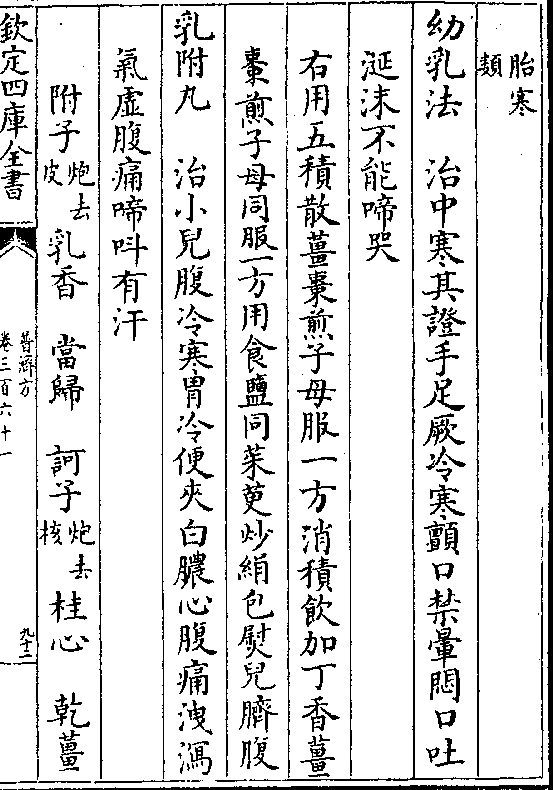 胎寒
類
幼乳法　治中寒其證手足厥冷寒顫口禁暈悶口吐
涎沫不能啼哭
右用五積散薑棗煎子母服一方消積飲加丁香薑
棗煎子母同服一方用食鹽同茱萸炒絹包熨兒臍腹
乳附丸　治小兒腹冷寒胃冷便夾白膿心腹痛洩瀉
氣虛腹痛啼呌有汗
附子炮去皮乳香　當歸　訶子炮去核桂心　乾薑
欽定四庫全書
普濟方
卷三百六十一
九十二